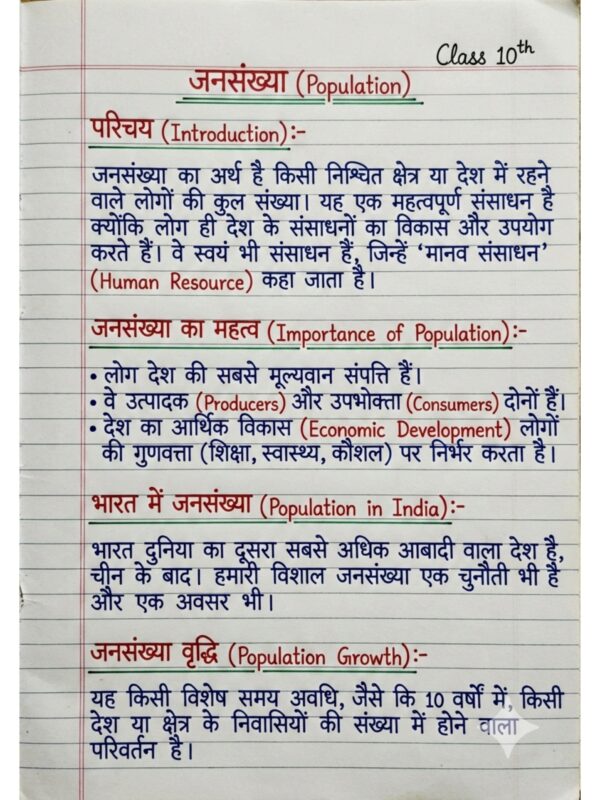 Class 10th
जनसंख्या (Population)
परिचय (Introduction):-
जनसंख्या का अर्थ है किसी निश्चित क्षेत्र या देश में रहने
वाले लोगों की कुल संख्या। यह एक महत्वपूर्ण संसाधन है
क्योंकि लोग ही देश के संसाधनों का विकास और उपयोग
करते हैं। वे स्वयं भी संसाधन हैं, जिन्हें ‘मानव संसाधन’
(Human Resource) कहा जाता है।
जनसंख्या का महत्व (Importance of Population):-
• लोग देश की सबसे मूल्यवान संपत्ति हैं।
• वे उत्पादक (Producers) और उपभोक्ता (Consumers) दोनों हैं।
• देश का आर्थिक विकास (Economic Development) लोगों
की गुणवत्ता (शिक्षा, स्वास्थ्य, कौशल) पर निर्भर करता है।
भारत में जनसंख्या (Population in India):-
भारत दुनिया का दूसरा सबसे अधिक आबादी वाला देश है,
चीन के बाद। हमारी विशाल जनसंख्या एक चुनौती भी है
और एक अवसर भी।
जनसंख्या वृद्धि (Population Growth):-
यह किसी विशेष समय अवधि, जैसे कि 10 वर्षों में, किसी
देश या क्षेत्र के निवासियों की संख्या में होने वाला
परिवर्तन है।